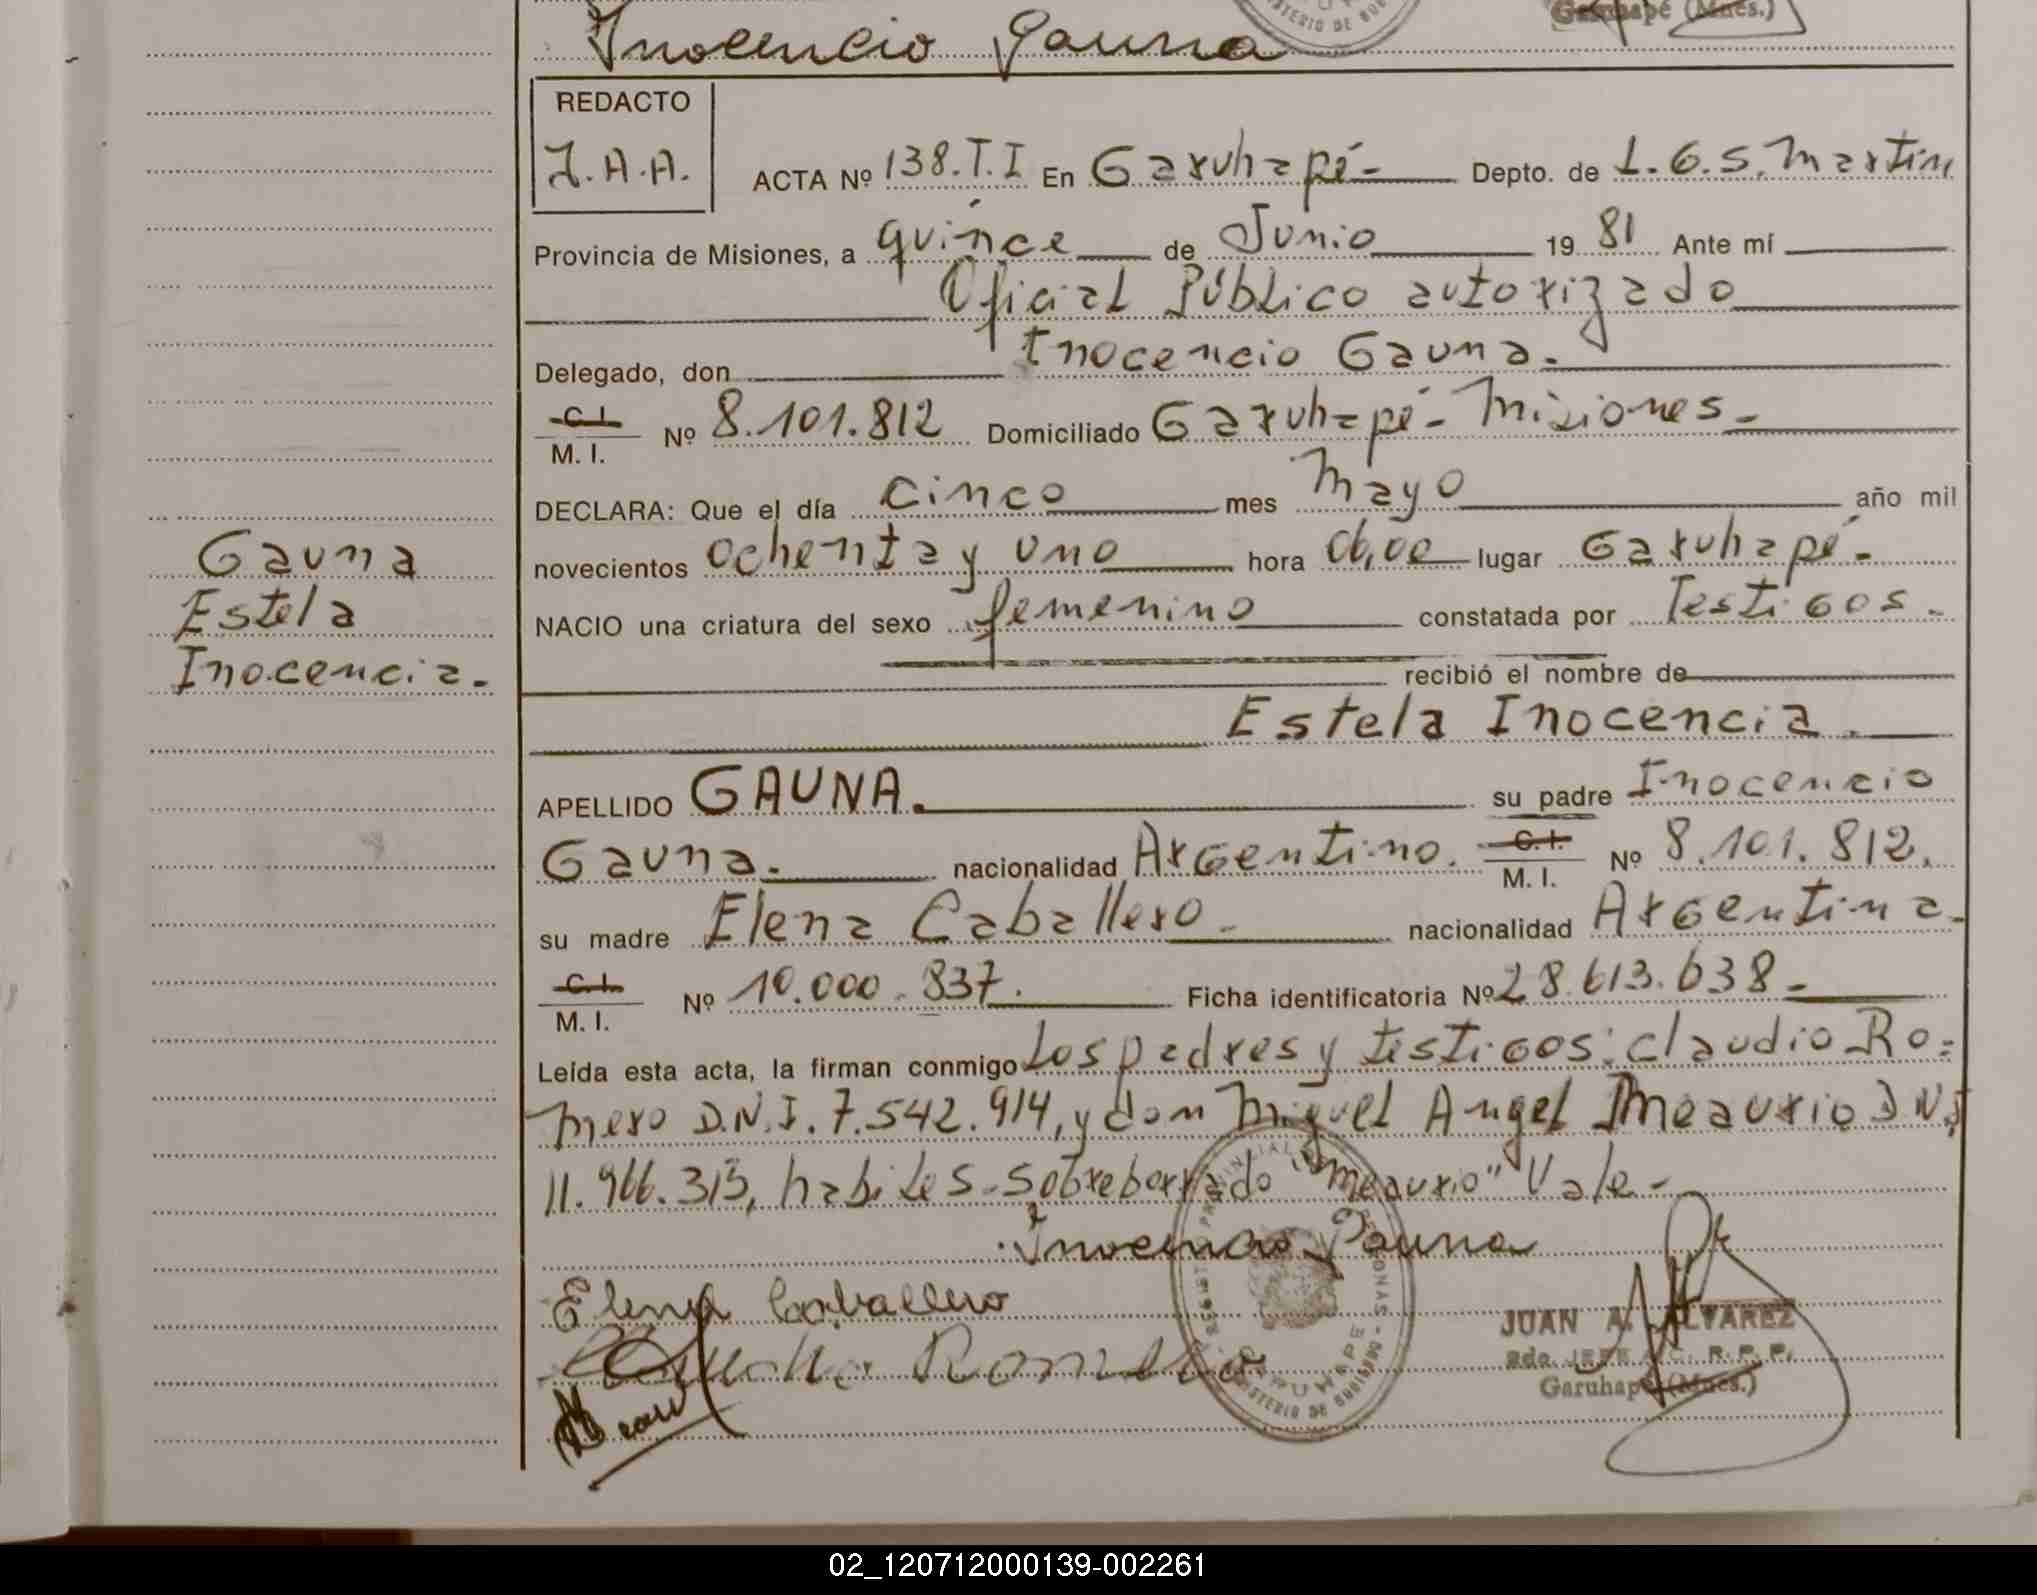 Inocencio Gauna
Garuhapé (Mnes.)
REDACTO
J.A.A.
ACTA Nº 138.T.I En Garuhapé- Depto. de L.G.S. Martin
Provincia de Misiones, a quince de Junio 19 81 Ante mí
Oficial Público autorizado
Delegado, don Inocencio Gauna.
C.I. M.I. Nº 8.101.812 Domiciliado Garuhapé- Misiones-
DECLARA: Que el día cinco mes Mayo año mil
novecientos ochenta y uno hora 06,00 lugar Garuhapé-
NACIO una criatura del sexo femenino constatada por Testigos-
recibió el nombre de
Estela Inocencia.
Gauna
Estela
Inocencia.-
APELLIDO GAUNA. su padre Inocencio
Gauna. nacionalidad Argentino. C.I. M.I. Nº 8.101.812.
su madre Elena Caballero- nacionalidad Argentina-
C.I. M.I. Nº 10.000.837. Ficha identificatoria Nº 28.613.638-
Leída esta acta, la firman conmigo Los padres y testigos: Claudio Ro-
mero D.N.I. 7.542.914, y don Miguel Angel Meaurio D.N.I
11.966.315, habiles-sobreborrado "Meaurio" Vale-
Inocencio Gauna
Elena Caballero
Romero
JUAN A. ALVAREZ
Garuhapé (Mnes.)
02_120712000139-002261